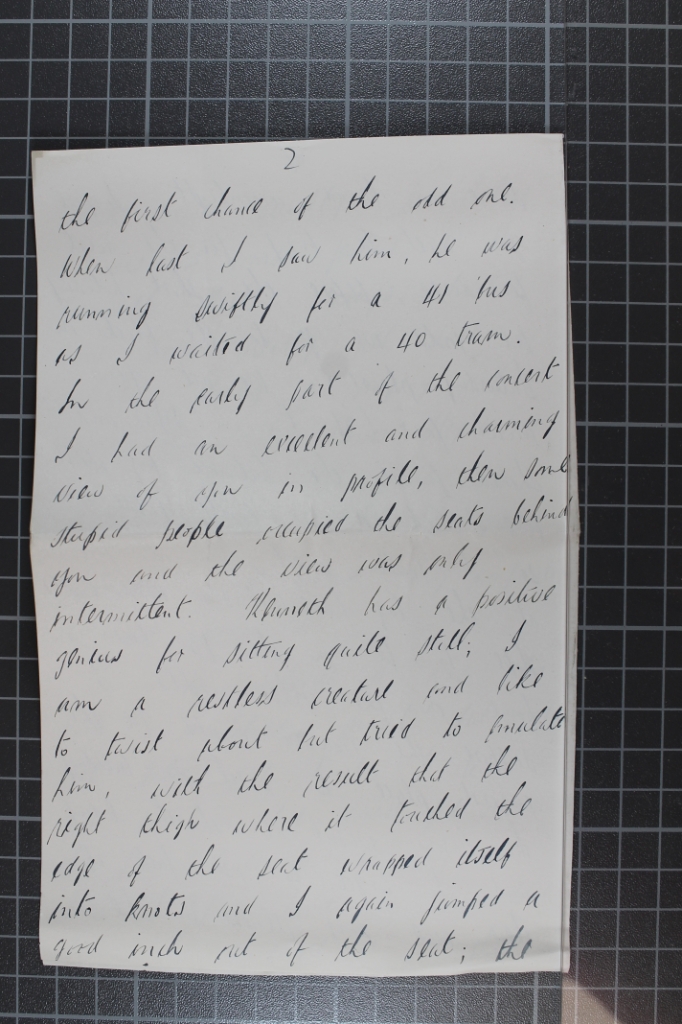 2
the first chance of the odd one.
When last I saw him, he was
running swiftly for a 41 bus
as I waited for a 40 tram.
In the early part of the concert
I had an excellent and charming
view of you in profile, then some
stupid people occupied the seats behind
you and the view was only
intermittent. Kenneth has a positive
genius for sitting quite still; I
am a restless creature and like
to twist about but tried to emulate
him, with the result that the
right thigh where it touched the
edge of the seat wrapped itself
into knots and I again jumped a
good inch out of the seat; the